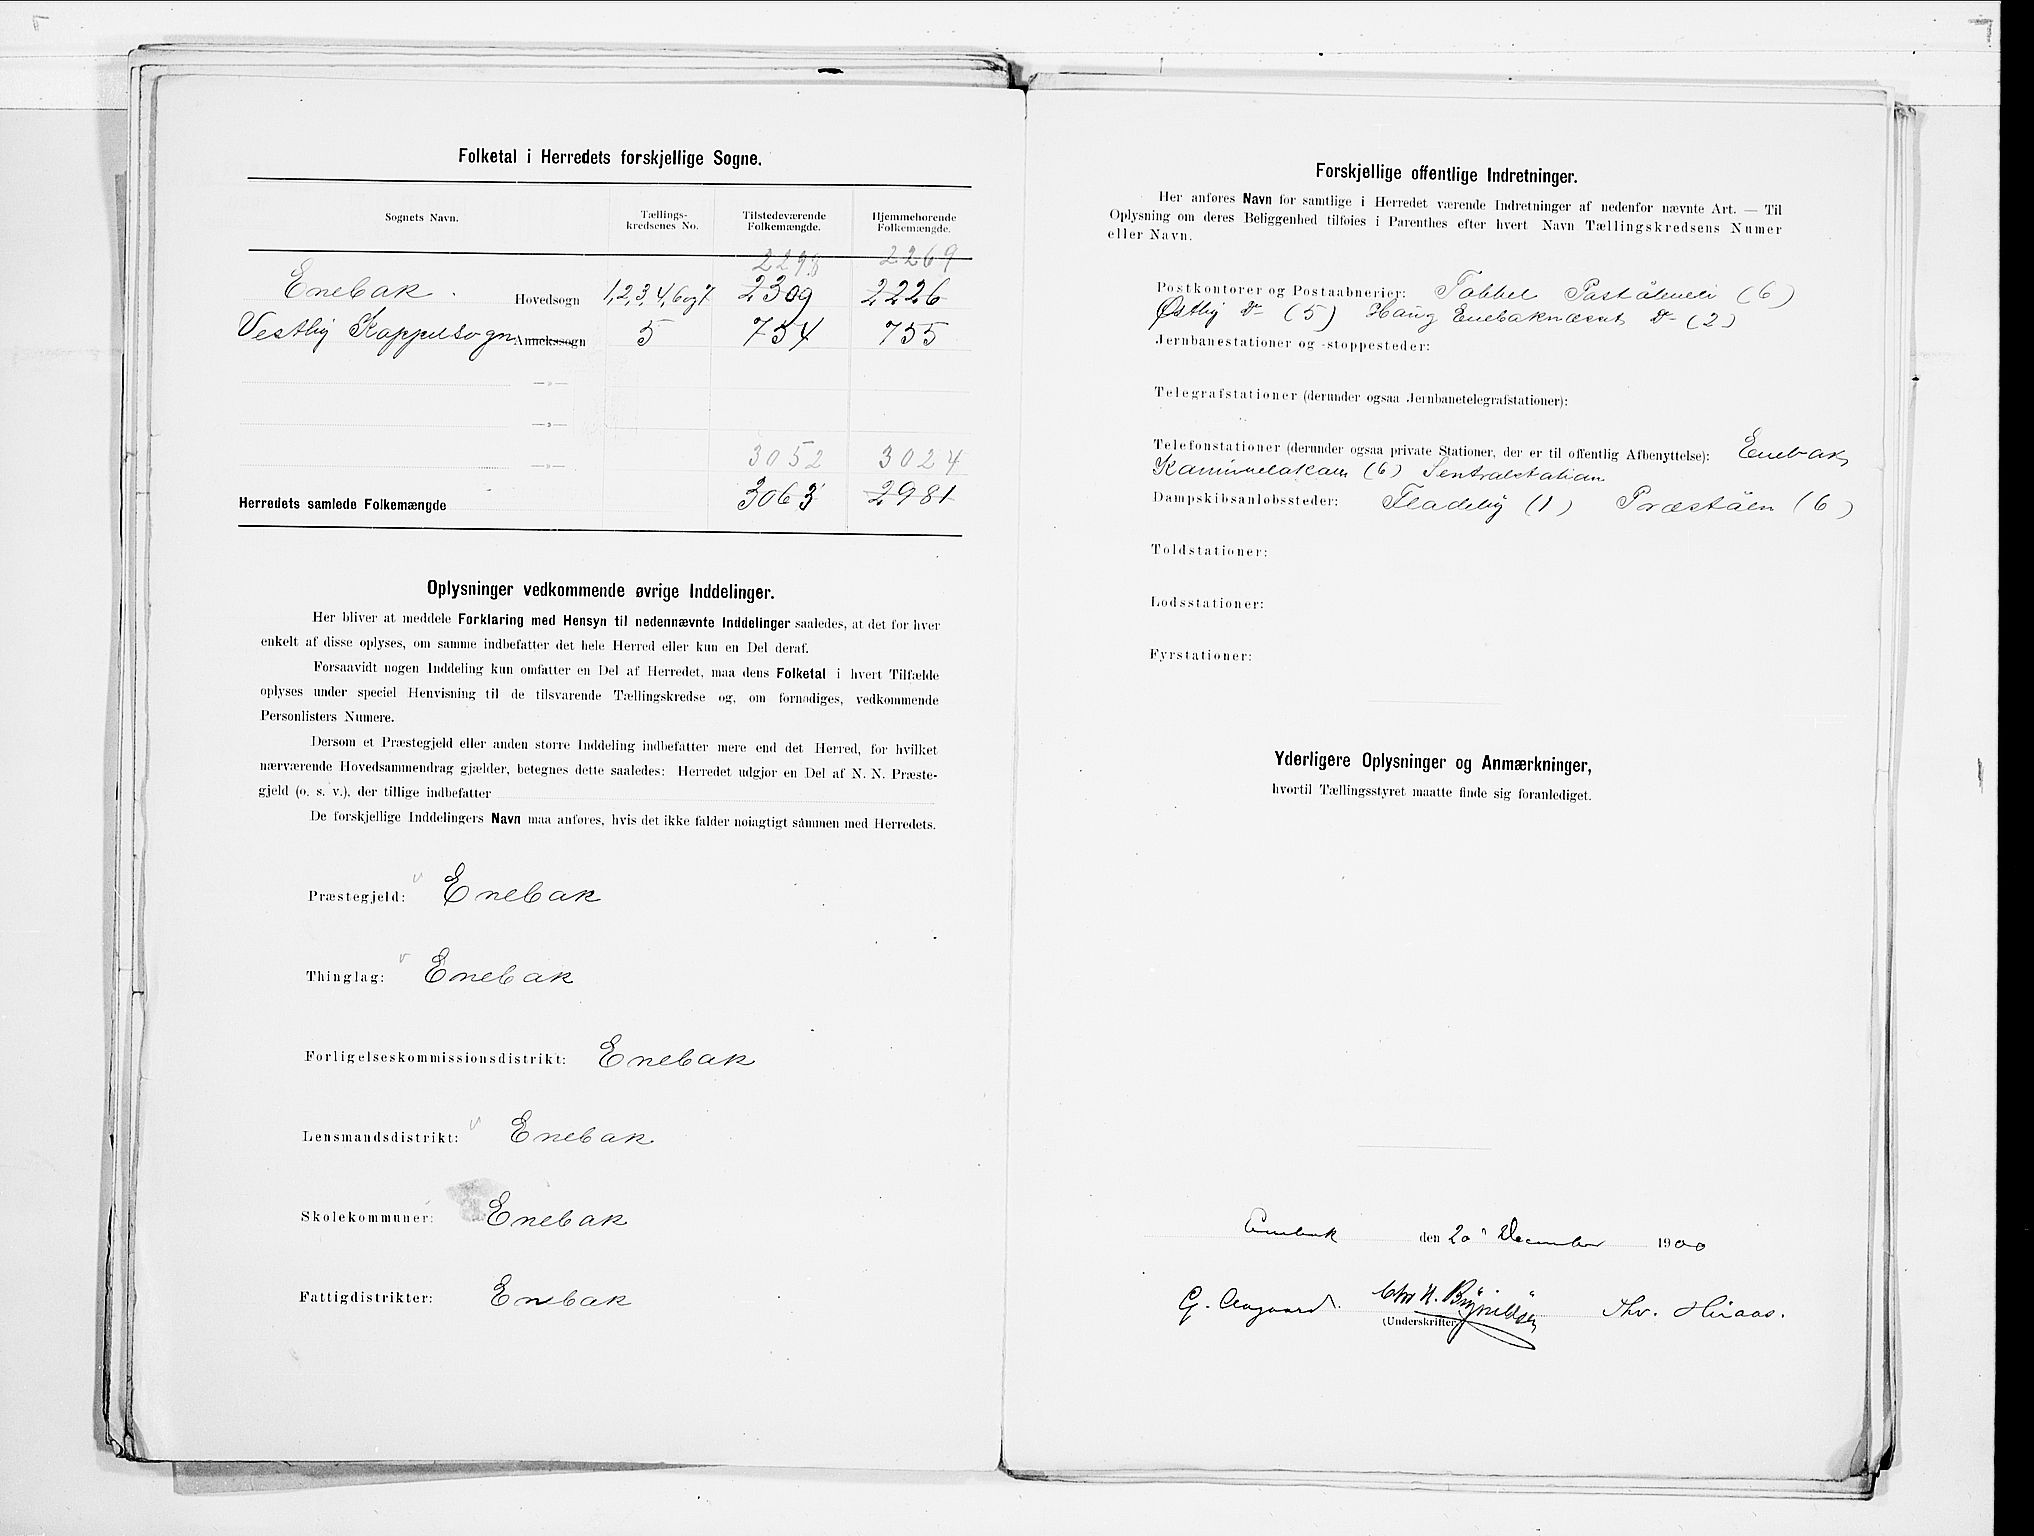 Folketal i Herredets forskjellige Sogne.
Sognets Navn. Tællings-kredsenes No. Tilstedeværende Folkemængde. Hjemmehørende Folkemængde.
2298 2269
Enebak. Hovedsogn 1,2,3,4,6og7 2309 2226
Vestby Kappelsogn Annekssogn 5 754 755
—»—
—»—
—»— 3052 3024
Herredets samlede Folkemængde 3063 2981
Oplysninger vedkommende øvrige Inddelinger.
Her bliver at meddele Forklaring med Hensyn til nedennævnte Inddelinger saaledes, at det for hver
enkelt af disse oplyses, om samme indbefatter det hele Herred eller kun en Del deraf.
Forsaavidt nogen Inddeling kun omfatter en Del af Herredet, maa dens Folketal i hvert Tilfælde
oplyses under speciel Henvisning til de tilsvarende Tællingskredse og, om fornødiges, vedkommende
Personlisters Numere.
Dersom et Præstegjeld eller anden større Inddeling indbefatter mere end det Herred, for hvilket
nærværende Hovedsammendrag gjælder, betegnes dette saaledes: Herredet udgjør en Del af N. N. Præste-
gjeld (o. s. v.), der tillige indbefatter
De forskjellige Inddelingers Navn maa anføres, hvis det ikke falder nøiagtigt sammen med Herredets.
Præstegjeld: Enebak
Thinglag: Enebak
Forligelseskommissionsdistrikt: Enebak
Lensmandsdistrikt: Enebak
Skolekommuner: Enebak
Fattigdistrikter: Enebak
Forskjellige offentlige Indretninger.
Her anføres Navn for samtlige i Herredet værende Indretninger af nedenfor nævnte Art. — Til
Oplysning om deres Beliggenhed tilføies i Parenthes efter hvert Navn Tællingskredsens Numer
eller Navn.
Postkontorer og Postaabnerier: (6)
Østby Do (5) Haug Enebaknæsset Do (2)
Jernbanestationer og -stoppesteder:
Telegrafstationer (derunder ogsaa Jernbanetelegrafstationer):
Telefonstationer (derunder ogsaa private Stationer, der er til offentlig Afbenyttelse): Enebak
(6) Sentralstation
Dampskibsanløbssteder: Fladeby (1) Præstöen (6)
Toldstationer:
Lodsstationer:
Fyrstationer:
Yderligere Oplysninger og Anmærkninger,
hvortil Tællingsstyret maatte finde sig foranlediget.
Enebak den 20 December 1900
G. Aagaard. Chr H. Brynildsen Thv. Huaas.
(Underskrifter)